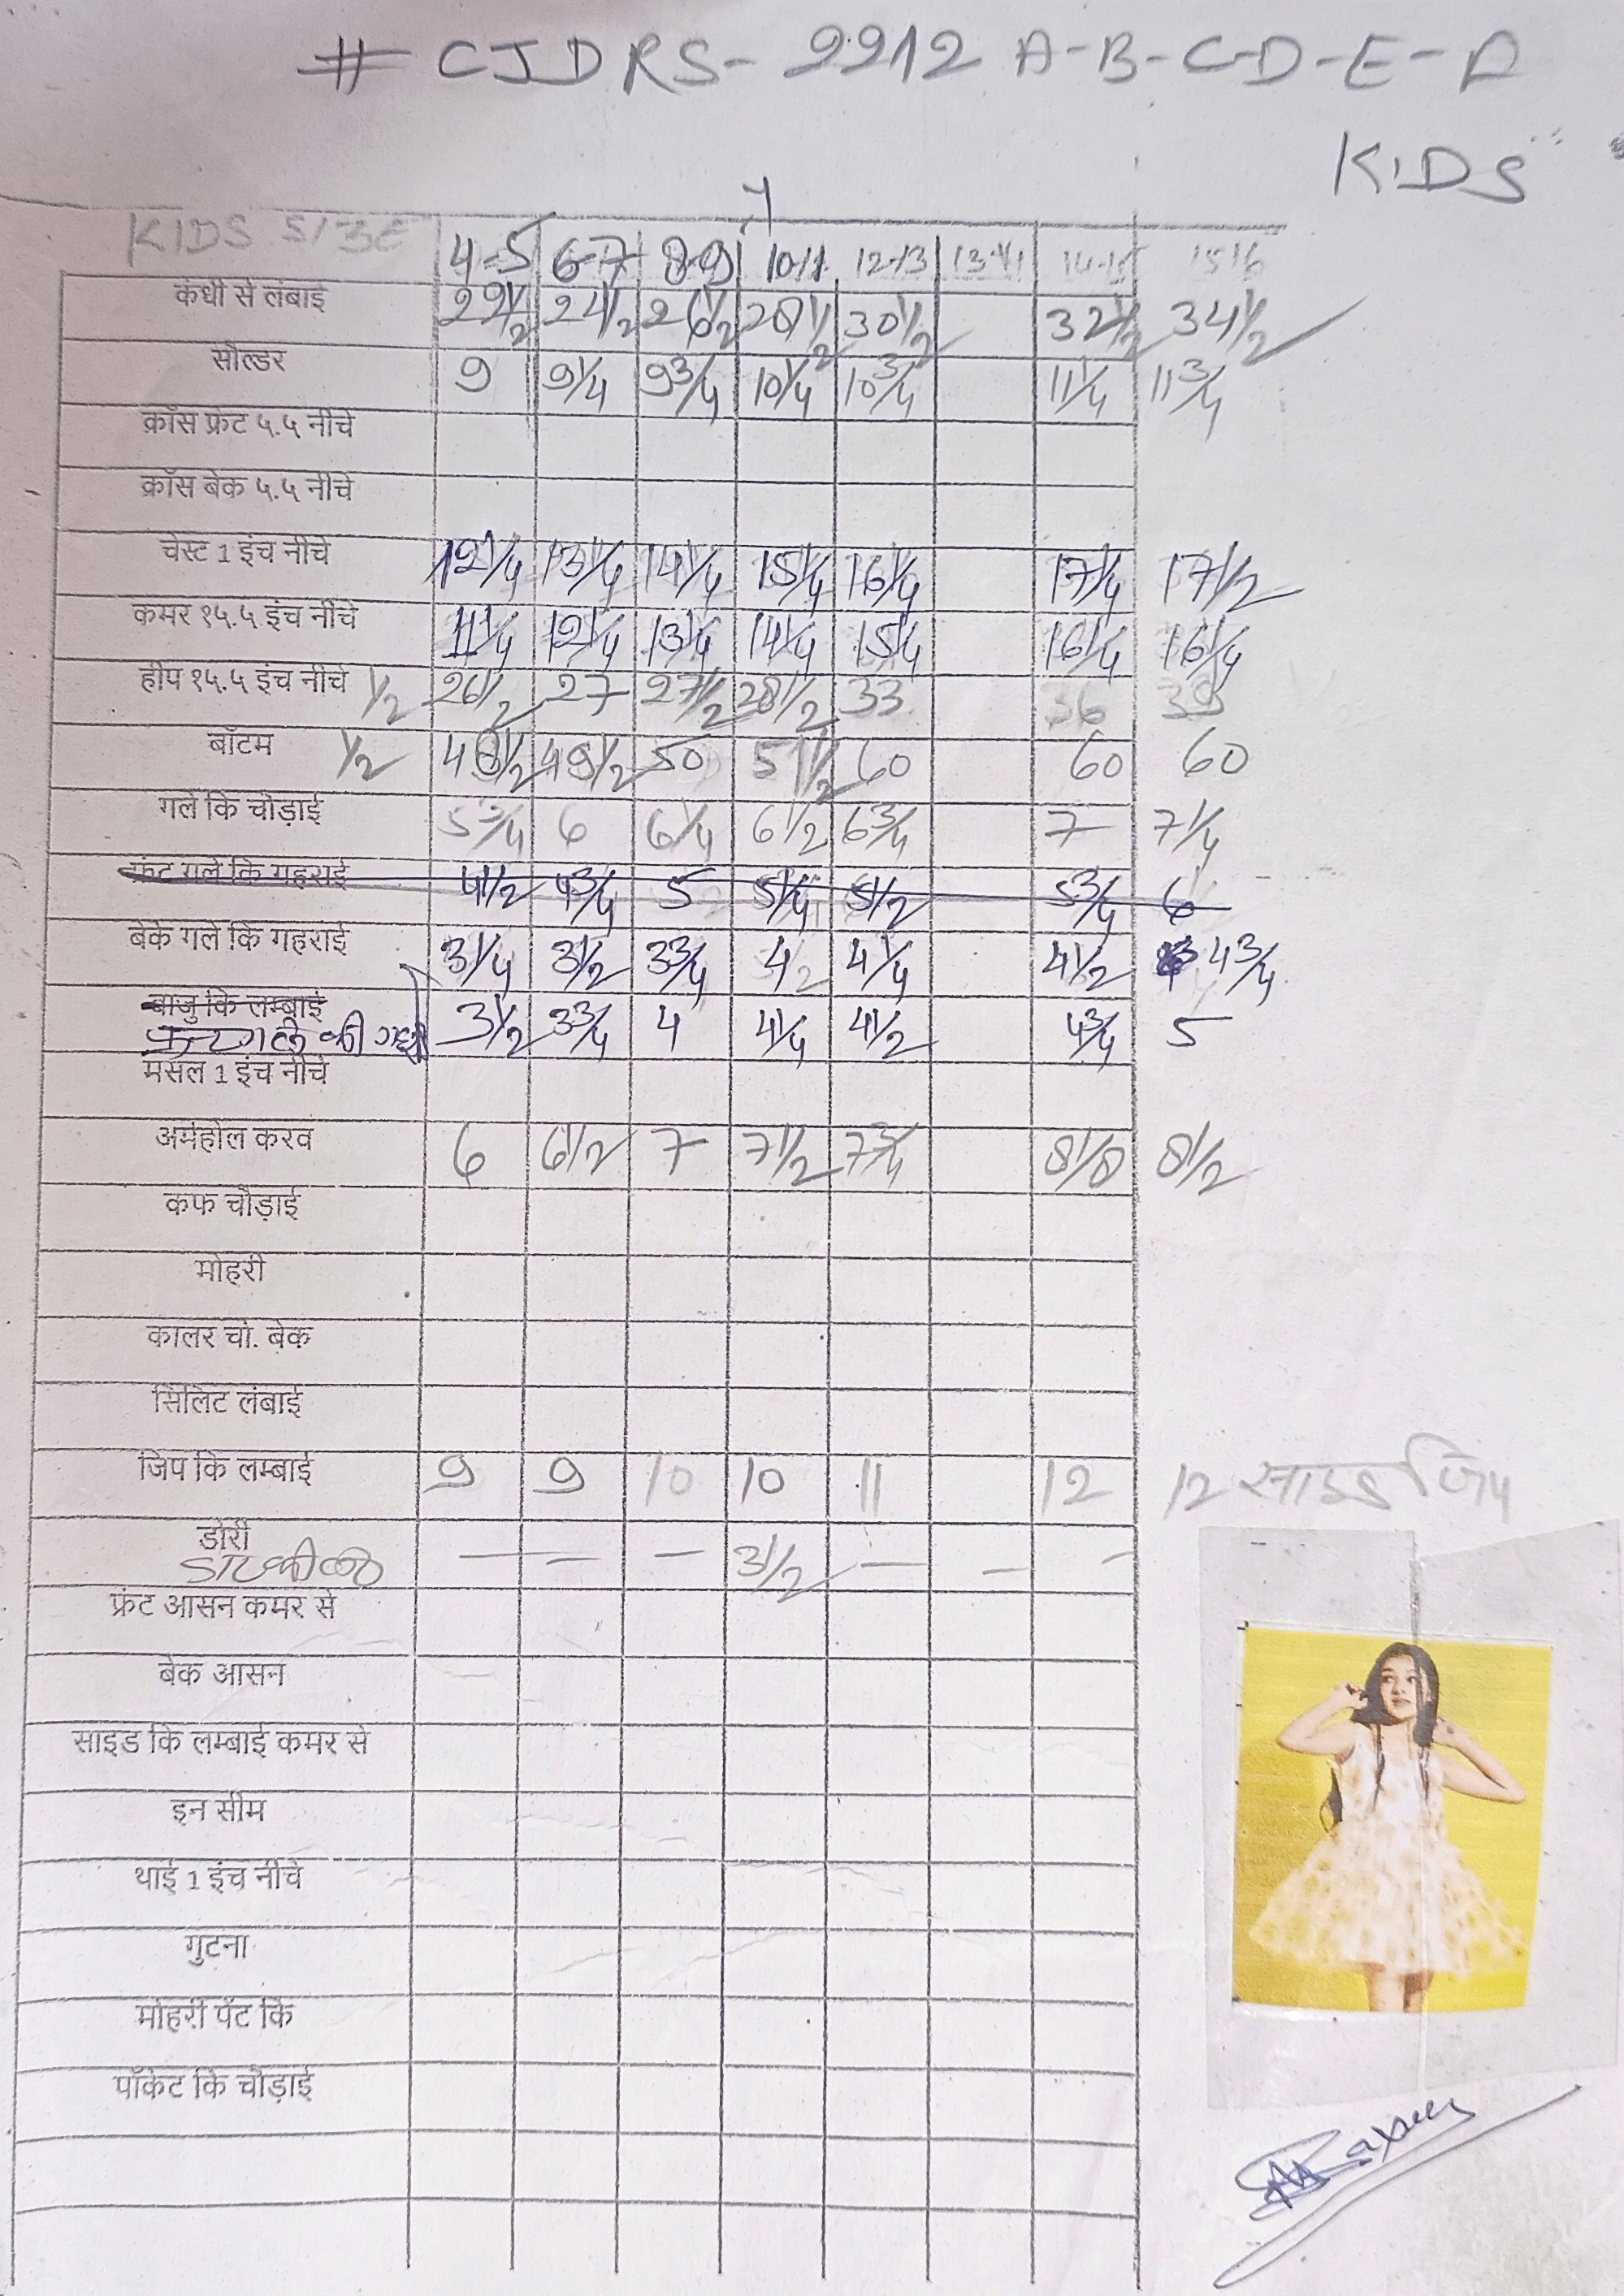 # CJDRS-2212 A-B-C-D-E-
KIDS
KIDS SIZE 4-5 6-7 8-9 10-11 12-13 14-15 15 16
कंधी से लंबाई 22 1/2 24 1/2 26 1/2 28 1/2 30 1/2 32 1/2 34 1/2
सोल्डर 9 9 1/4 9 3/4 10 1/4 10 3/4 11 1/4 11 3/4
क्रॉस फ्रंट ५.५ नीचे
क्रॉस बेक ५.५ नीचे
चेस्ट 1 इंच नीचे 12 1/4 13 1/4 14 1/4 15 1/4 16 1/4 17 1/4 17 1/2
कमर १५.५ इंच नीचे 11 1/4 12 1/4 13 1/4 14 1/4 15 1/4 16 1/4 16 1/4
हीप १५.५ इंच नीचे 1/2 26 1/2 27 27 1/2 28 1/2 33 36 39
बॉटम 1/2 48 1/2 49 1/2 50 51 1/2 60 60 60
गले कि चोड़ाई 5 3/4 6 6 1/4 6 1/2 6 3/4 7 7 1/4
फ्रंट गले कि गहराई 4 1/2 4 3/4 5 5 1/4 5 1/2 5 3/4 6
बेक गले कि गहराई 3 1/4 3 1/2 3 3/4 4 4 1/4 4 1/2 4 3/4
बाजु कि लम्बाई 3 1/2 3 3/4 4 4 1/4 4 1/2 4 3/4 5
मसल 1 इंच नीचे
अर्महोल करव 6 6 1/2 7 7 1/2 7 3/4 8 1/8 8 1/2
कफ चौड़ाई
मोहरी
कालर चो. बेक
सिलिट लंबाई
जिप कि लम्बाई 9 9 10 10 11 12 12 साइड जिप
डोरी — — — 3 1/2 — — —
फ्रंट आसन कमर से
बेक आसन
साइड कि लम्बाई कमर से
इन सीम
थाई 1 इंच नीचे
गुटना
मोहरी पेंट कि
पॉकेट कि चौड़ाई